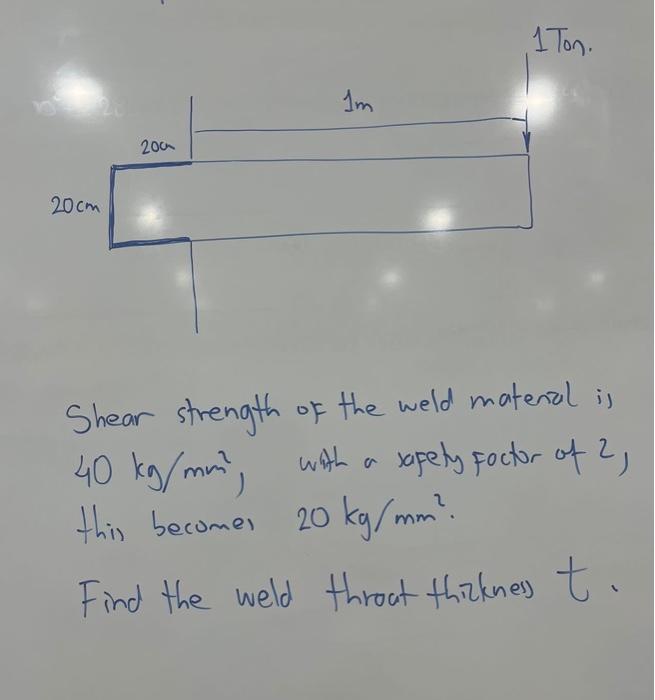 1 Ton.
1m
20cm
20cm
Shear strength of the weld material is
40 kg/mm², with a safety factor of 2,
this becomes 20 kg/mm².
Find the weld throat thickness t.